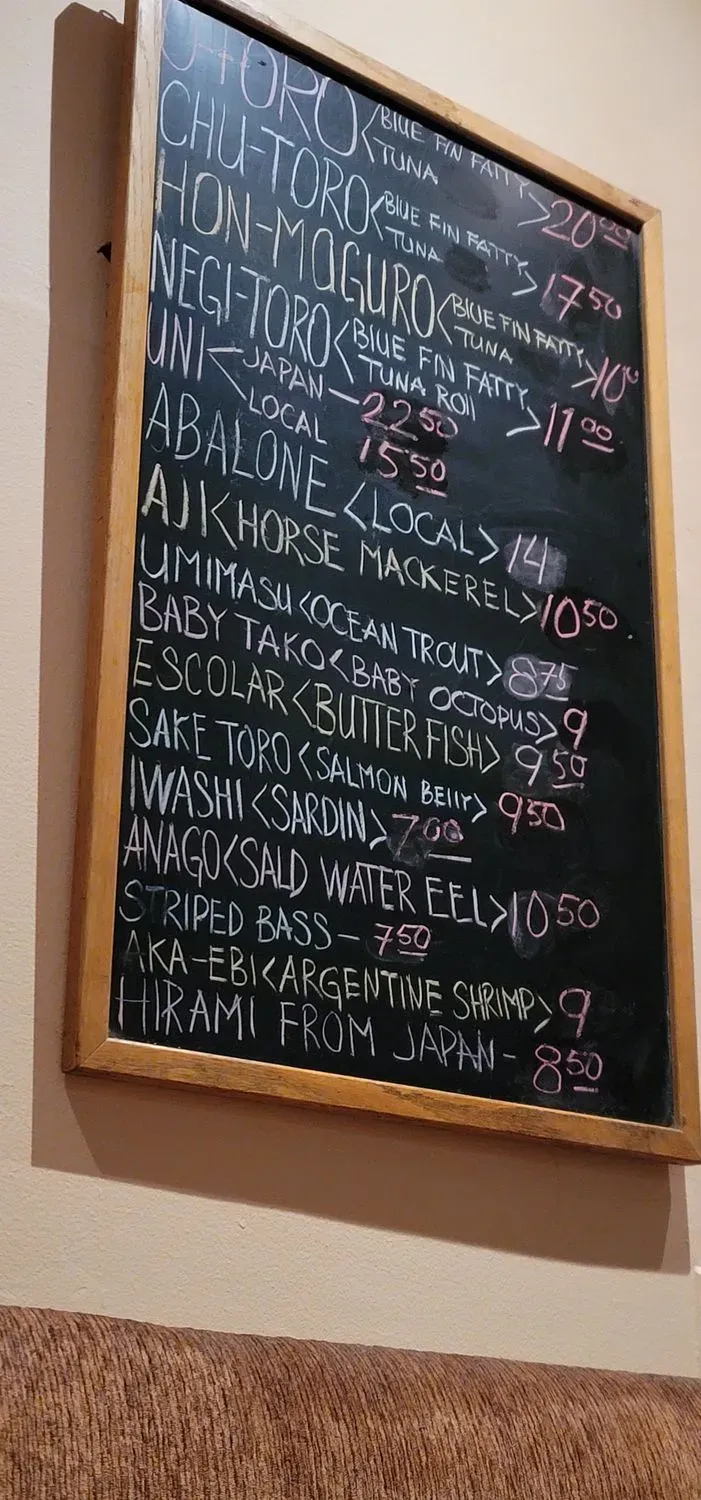 O-TORO <BLUE FIN FATTY TUNA> 20.00
CHU-TORO <BLUE FIN FATTY TUNA> 17.50
HON-MAGURO <BLUE FIN FATTY TUNA> 10.00
NEGI-TORO <BLUE FIN FATTY TUNA ROll> 11.00
UNI < JAPAN — 22.50
LOCAL 15.50
ABALONE <LOCAL> 14
AJI <HORSE MACKEREL> 10.50
UMIMASU <OCEAN TROUT> 8.75
BABY TAKO <BABY OCTOPUS> 9
ESCOLAR <BUTTER FISH> 9.50
SAKE TORO <SALMON BEllY> 9.50
IWASHI <SARDIN> 7.00
ANAGO <SALD WATER EEL> 10.50
STRIPED BASS — 7.50
AKA-EBI <ARGENTINE SHRIMP> 9
HIRAMI FROM JAPAN - 8.50